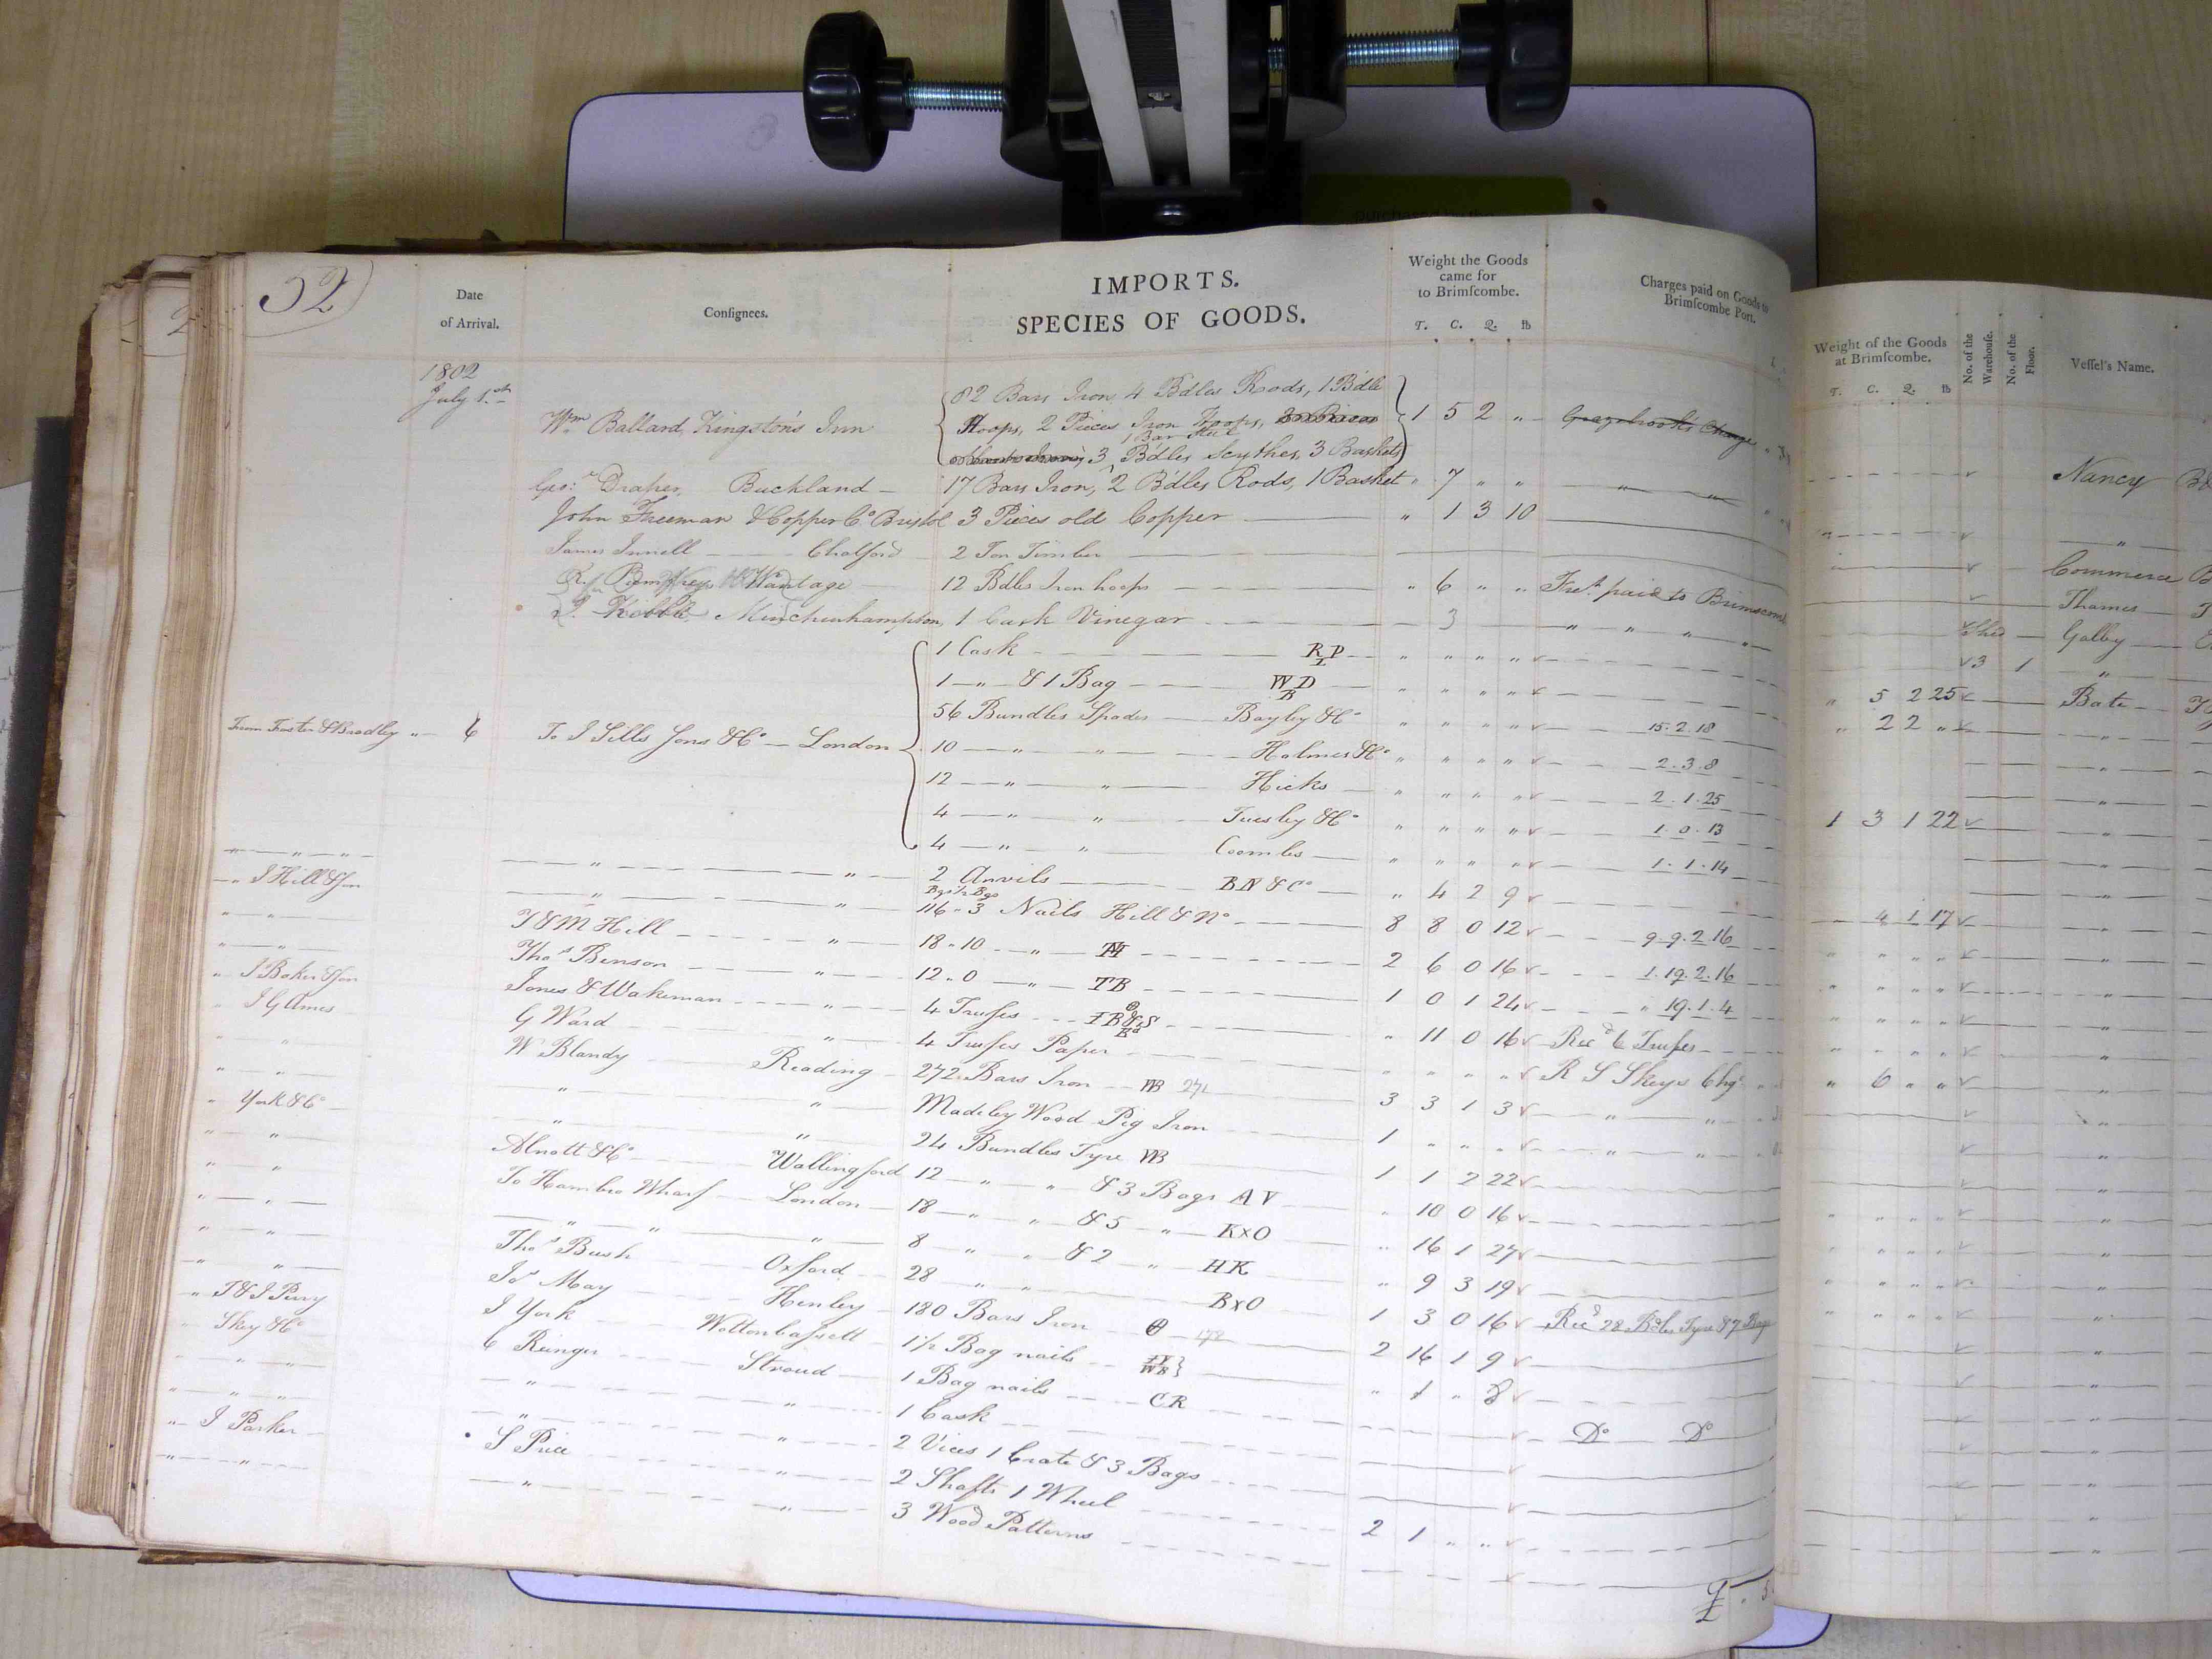 52
Date
of Arrival.
Consignees.
IMPORTS.
SPECIES OF GOODS.
Weight the Goods
came for
to Brimscombe.
T. C. Q. lb
Charges paid on Goods to
Brimscombe Port.
Weight of the Goods
at Brimscombe.
T. C. Q. lb
No. of the
Warehouse.
No. of the
Floor.
Vessel's Name.
1802
July 1st
82 Bars Iron, 4 Bdles Rods, 1 Bdle
Wm Ballard, Kingston's Inn Hoops, 2 Pieces Iron Hoops, 1 5 2 "
1 Bar Steel
3 Bdles Scythes, 3 Baskets
Nancy
Geo: Draper, Buckland 17 Bars Iron, 2 Bdles Rods, 1 Basket " 7 " " " "
John Freeman & Copper Co Bristol 3 Pieces old Copper " 1 3 10 Commerce
James Chalford 2 Ton Timber Thames
Wantage 12 Bdles Iron hoops " 6 " " Fret. paid to Brimscomb Shed Galley
Minchenhampton, 1 Cask Vinegar 3 " " " " 3 1 "
1 Cask RP " " " " " 5 2 25 Bate
1 " & 1 Bag WD B " " " " " 2 2 " "
56 Bundles Spades Bayley & Co " " " " 15.2.18 "
From Foster & Bradley " 6 To J Sills Sons & Co London 10 " " Holmes & Co " " " " 2.3.8 "
12 " " Hicks " " " " 2.1.25 1 3 1 22 "
4 " " Tuesley & Co " " " " 1.0.13
4 " " Coombes " " " " 1.1.14
" " " " " " 2 Anvils BN & Co " 4 2 9 4 1 17
" J Hill & Son " " Bgs ½ Bgs
116 " 3 Nails Hill & No 8 8 0 12 9.9.2.16
" " T & M Hill " 18 " 10 " 2 6 0 16 1.19.2.16
" " Thos Benson " 12 " 0 " TB 1 0 1 24 " 19.1.4
" J Baker & Son Jones & Wakeman " 4 Trusses " 11 0 16 Recd 6 Trusses
" J G Ames G Ward " 4 Trusses Paper " " " " R S Skeys Chgs " 6 " "
" " W Blandy Reading 272 Bars Iron WB 271 3 3 1 3 " "
" " " " Madeley Wood Pig Iron 1 " " " " "
" York & Co " " 24 Bundles Tyre WB 1 1 2 22
" " Alnott & Co Wallingford 12 " " & 3 Bags AV " 10 0 16
" " To Hambro Wharf London 18 " " & 5 " K×O " 16 1 27
" " " " " 8 " " & 2 " HK " 9 3 19
" " Thos Bush Oxford 28 " " B×O 1 3 0 16 Recd 28 Bdles Tyre & 7 Bags
" " Jos May Henley 180 Bars Iron 178 2 16 1 9
" T & J Perry J York Wottonbassett 1½ Bag nails " 1 " 8
" Skey & Co C Ringer Stroud 1 Bag nails CR Do Do
" " " " 1 Cask
" " " " " 2 Vices 1 Crate & 3 Bags
" J Parker S Price " 2 Shafts 1 Wheel 2 1 " "
" " " " 3 Wood Patterns
£